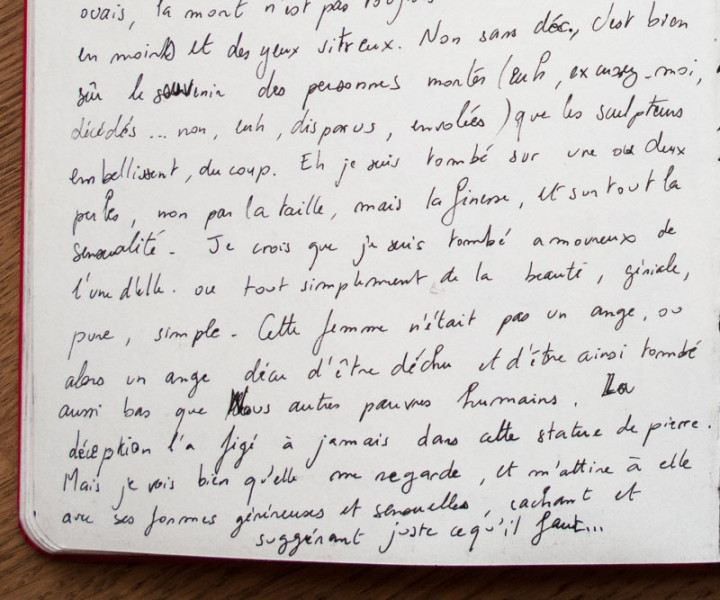 ouais, la mort n'est pas toujours
en moins et des yeux vitreux. Non sans déc., c'est bien
sûr le souvenir des personnes mortes (euh, excusez-moi,
décédés... non, euh, disparus, envolées) que les sculpteurs
embellissent, du coup. Eh je suis tombé sur une ou deux
perles, non par la taille, mais la finesse, et surtout la
sensualité. Je crois que je suis tombé amoureux de
l'une d'elle. ou tout simplement de la beauté, géniale,
pure, simple. Cette femme n'était pas un ange, ou
alors un ange déçu d'être déchu et d'être ainsi tombé
aussi bas que Nous autres pauvres humains. La
déception l'a figé à jamais dans cette statue de pierre.
Mais je vois bien qu'elle me regarde, et m'attire à elle
avec ses formes généreuses et sensuelles, cachant et
suggérant juste ce qu'il faut...